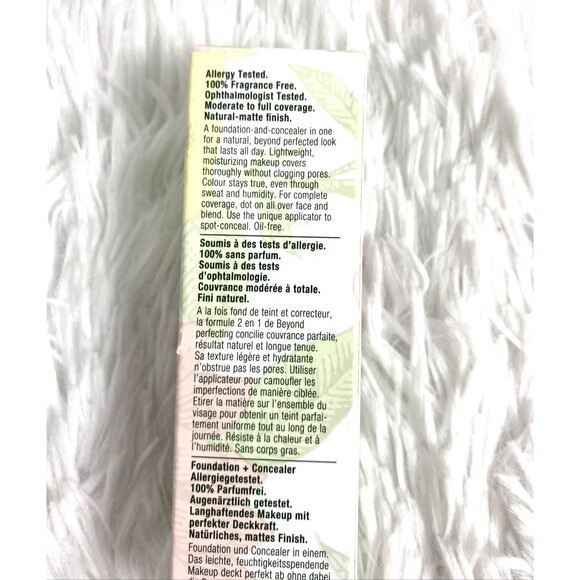 Allergy Tested.
100% Fragrance Free.
Ophthalmologist Tested.
Moderate to full coverage.
Natural-matte finish.
A foundation-and-concealer in one
for a natural, beyond perfected look
that lasts all day. Lightweight,
moisturizing makeup covers
thoroughly without clogging pores.
Colour stays true, even through
sweat and humidity. For complete
coverage, dot on all over face and
blend. Use the unique applicator to
spot-conceal. Oil-free.
Soumis à des tests d'allergie.
100% sans parfum.
Soumis à des tests
d'ophtalmologie.
Couvrance modérée à totale.
Fini naturel.
A la fois fond de teint et correcteur,
la formule 2 en 1 de Beyond
perfecting concilie couvrance parfaite,
résultat naturel et longue tenue.
Sa texture légère et hydratante
n'obstrue pas les pores. Utiliser
l'applicateur pour camoufler les
imperfections de manière ciblée.
Etirer la matière sur l'ensemble du
visage pour obtenir un teint parfai-
tement uniforme tout au long de la
journée. Résiste à la chaleur et à
l'humidité. Sans corps gras.
Foundation + Concealer
Allergiegetestet.
100% Parfumfrei.
Augenärztlich getestet.
Langhaftendes Makeup mit
perfekter Deckkraft.
Natürliches, mattes Finish.
Foundation und Concealer in einem.
Das leichte, feuchtigkeitsspendende
Makeup deckt perfekt ab ohne dabei